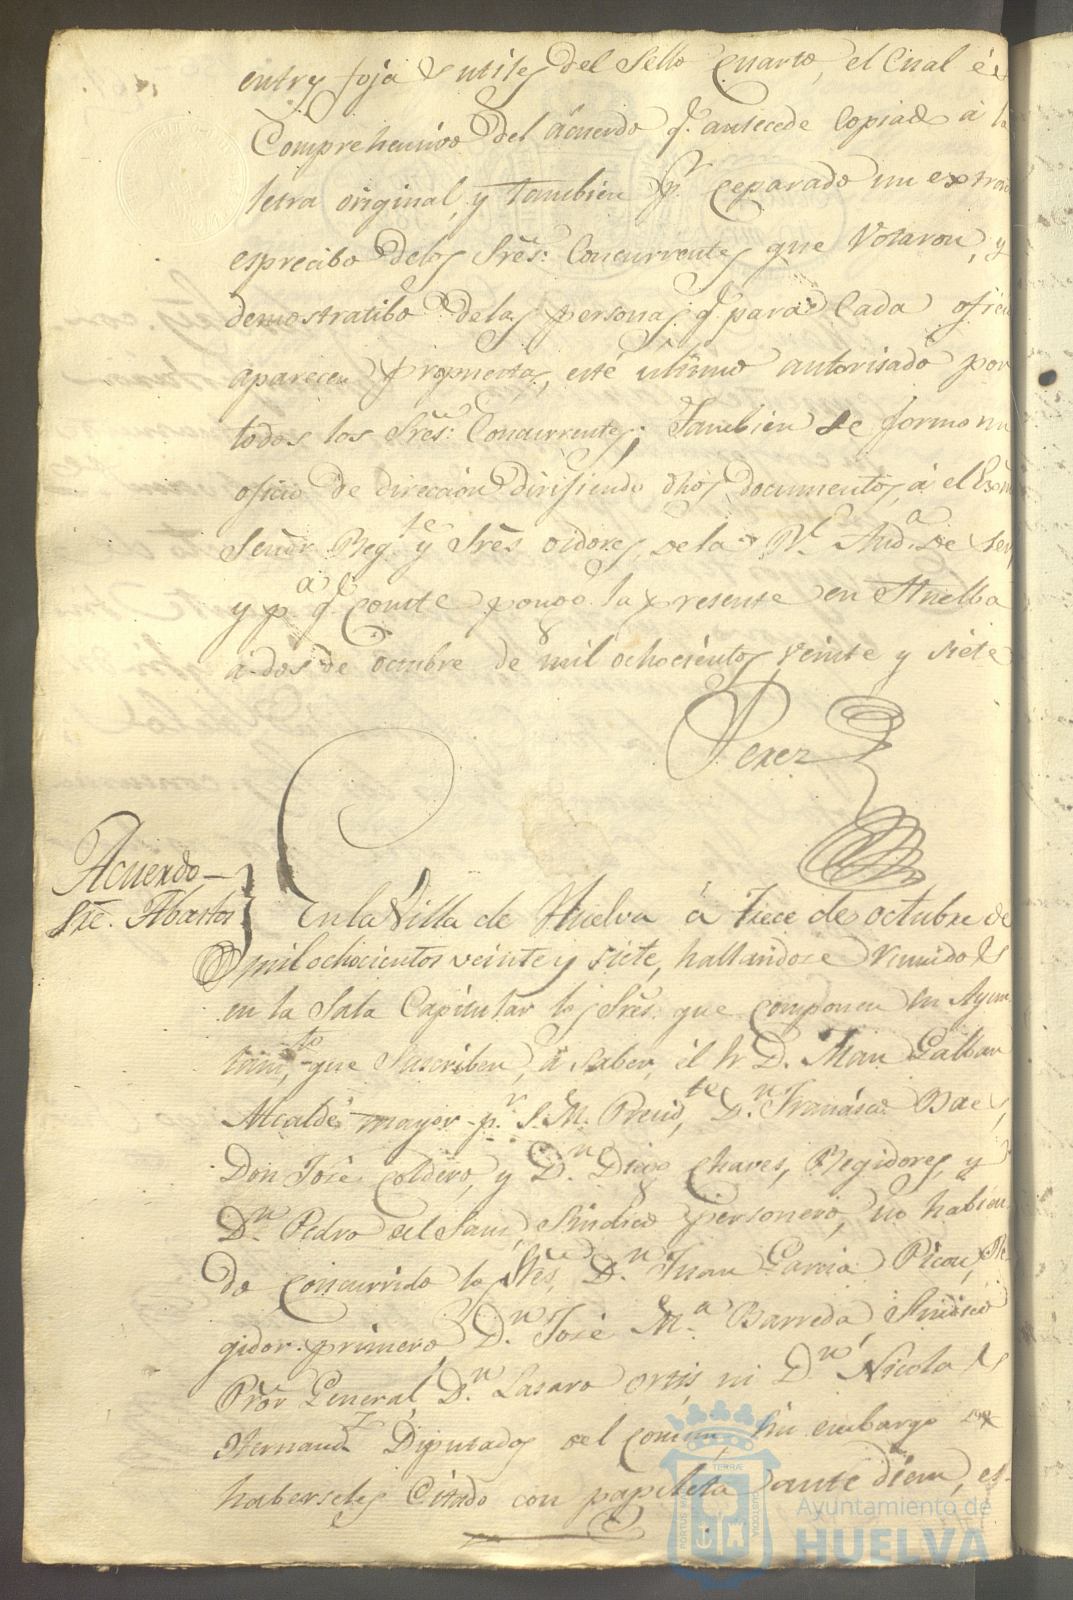 entrs foja s utiles del Sello quarto, el cual és
Comprehensivo del acuerdo q.e antecede copiado à la
letra original, y tambien p.r ceparado un extrac
esprecibo delos Sres. Concurrentes que Votaron, y
demostratibo delas personas q.e para cada oficio
aparecen propuestas, esté ultimo autorisado por
todos los Sres. Concurrentes; Tambien se formo un
oficio de direccion dirijiendo dhos documentos, á el Exmo
Señor Reg.te y Sres oidores de la R.l Aud.a de Sev,
y p.a q.e conste pongo la presente en Huelba
a dos de octubre de mil ochocientos veinte y siete
Perez
Acuerdo
Sre. Abastos
En la Villa de Huelva á Trece de octubre de
mil ochocientos veinte y siete, hallandose reunidos
en la Sala Capitular los Sres. que componen su Ayun
tam.to que Suscriben, á saber, él Sr D. Juan Galban
Alcalde mayor p.r S. M. Presid.te, D.n Francisco Baes,
Don José Coldero, y D.n Diego Chaves, Regidores, y
D.n Pedro del Sans, Sindico personero, no habien
do concurrido los Sres, D.n Juan Garcia Picon, Re
gidor primero, D.n José M.a Barreda, Sindico
Pror General, D.n Lasaro Ortis, ni D.n Nicolas
Hernand.z Diputados del comun, sin embargo de
haberseles Citado con papeleta ante diem, es-
PORTUS MARIS
TERRÆ
CUSTODIA
Ayuntamiento de
HUELVA